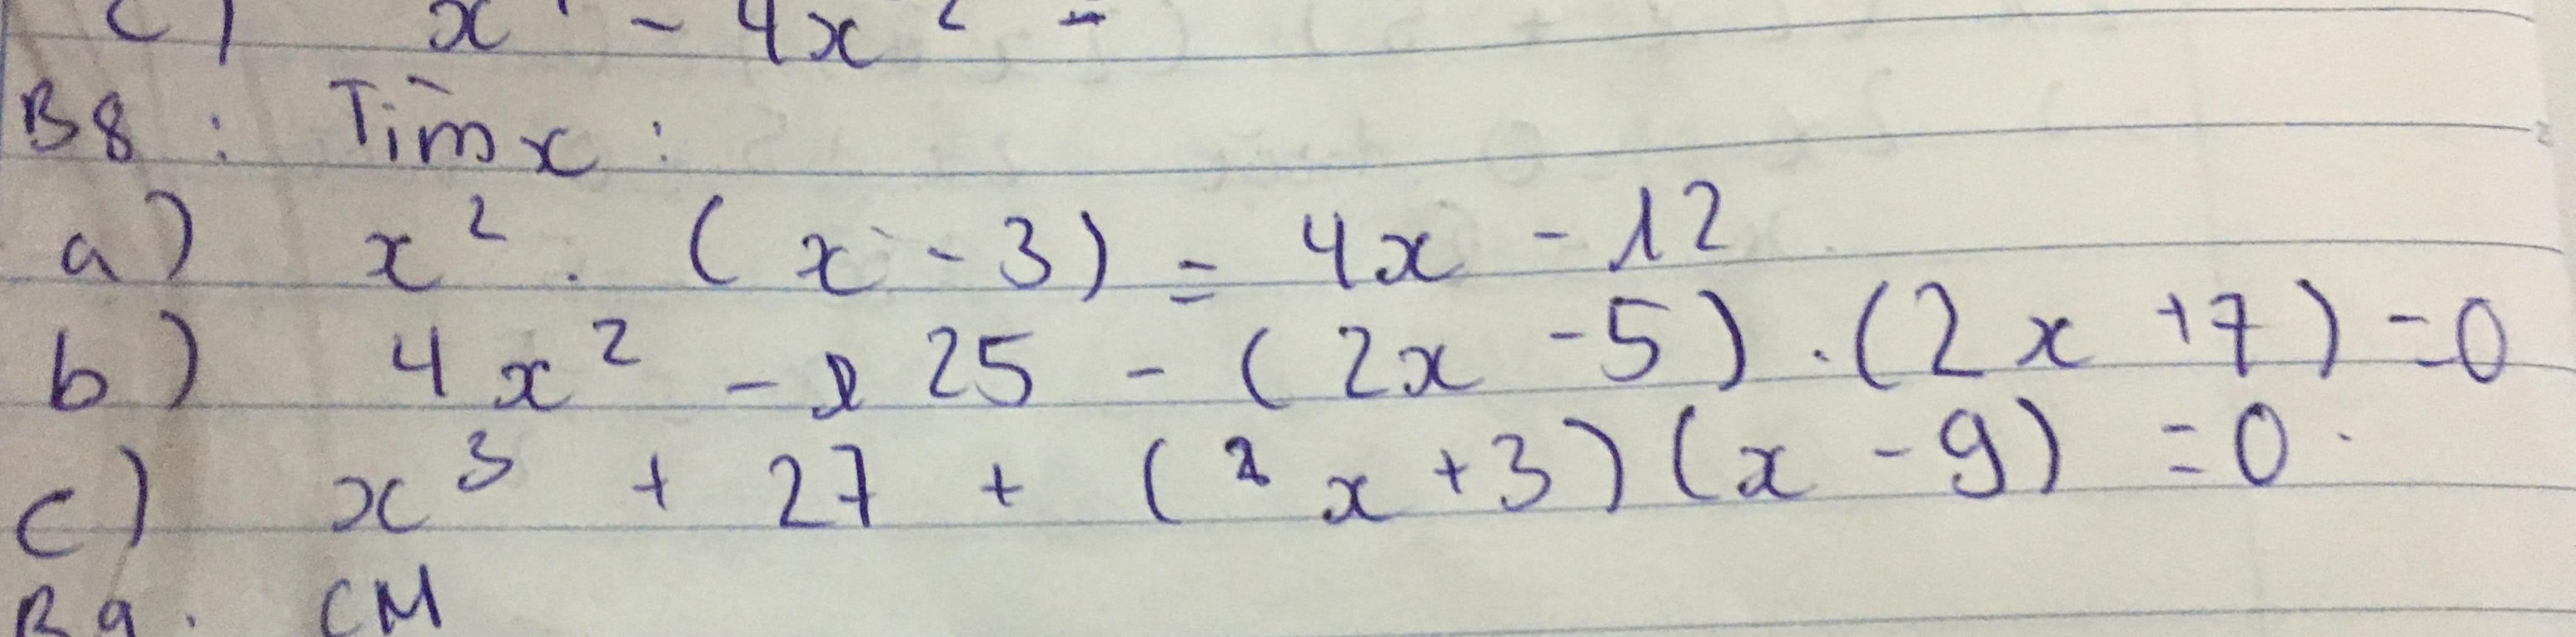 c) x - 4x² -
B8 : Tìm x :
a) x² . (x - 3) = 4x - 12
b) 4x² - 25 - (2x - 5) . (2x + 7) = 0
c) x³ + 27 + (x + 3)(x - 9) = 0.
B9. CM